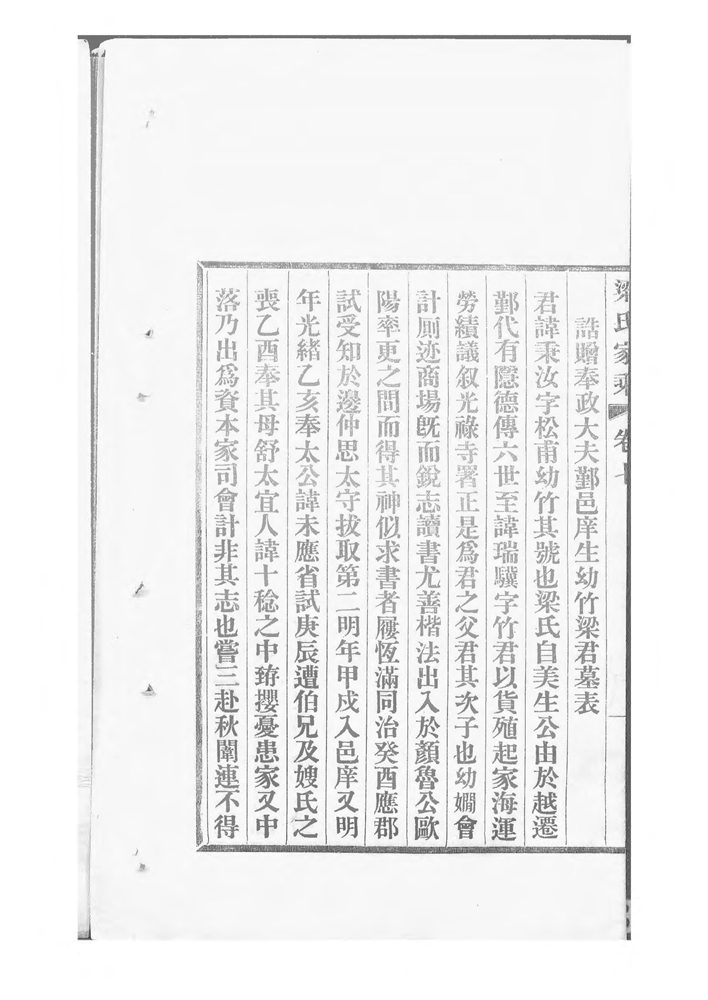 梁氏家乘 卷
誥贈奉政大夫鄞邑庠生幼竹梁君墓表
君諱秉汝字松甫幼竹其號也梁氏自美生公由於越遷
鄞代有隱德傳六世至諱瑞驥字竹君以貨殖起家海運
勞績議叙光祿寺署正是爲君之父君其次子也幼嫺會
計厠迹商場旣而銳志讀書尤善楷法出入於顏魯公歐
陽率更之間而得其神似求書者屨恆滿同治癸酉應郡
試受知於邊仲思太守拔取第二明年甲戍入邑庠又明
年光緒乙亥奉太公諱未應省試庚辰遭伯兄及嫂氏之
喪乙酉奉其母舒太宜人諱十稔之中荐攖憂患家又中
落乃出爲資本家司會計非其志也嘗三赴秋闈連不得